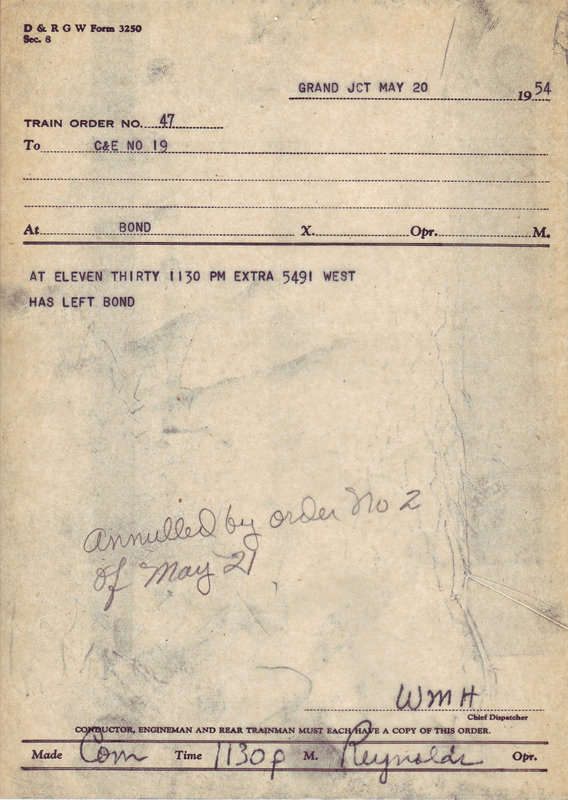 D & R G W Form 3250
Sec. 8
GRAND JCT MAY 20 1954
TRAIN ORDER NO. 47
To C&E NO 19
At BOND X. Opr. M.
AT ELEVEN THIRTY 1130 PM EXTRA 5491 WEST
HAS LEFT BOND
Annulled by order No 2
of May 21
WMH
Chief Dispatcher
CONDUCTOR, ENGINEMAN AND REAR TRAINMAN MUST EACH HAVE A COPY OF THIS ORDER.
Made Com Time 1130p M. Reynolds Opr.